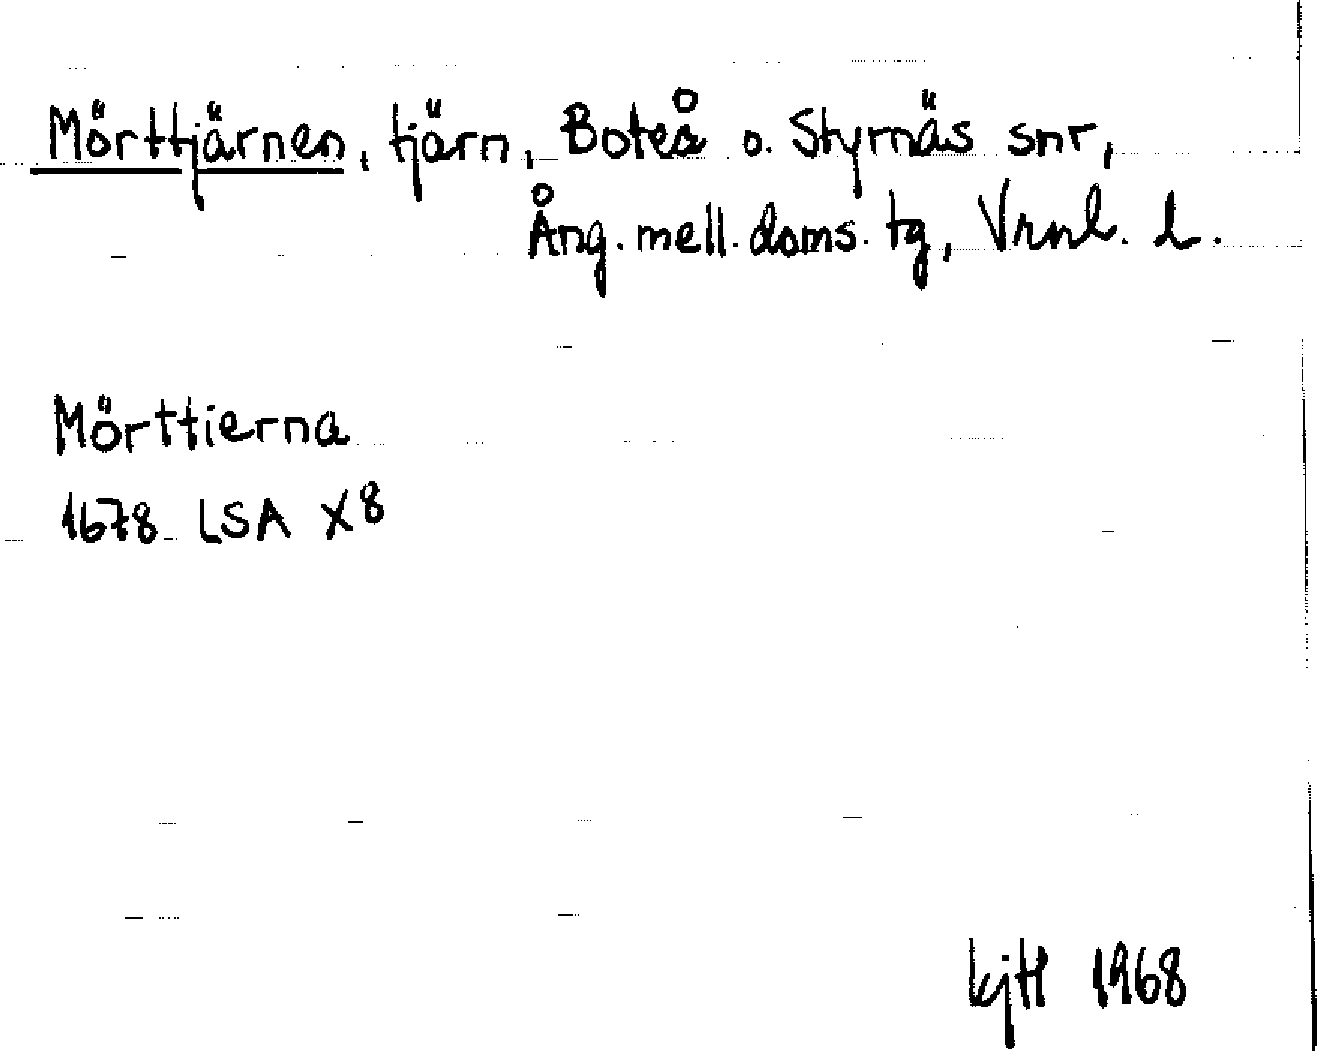 Mörttjärnen, tjärn, Boteå o. Styrnäs snr,
Ång. mell. doms. tg, Vrnl. l.
Mörttierna
1678 LSA X8
kjH 1968